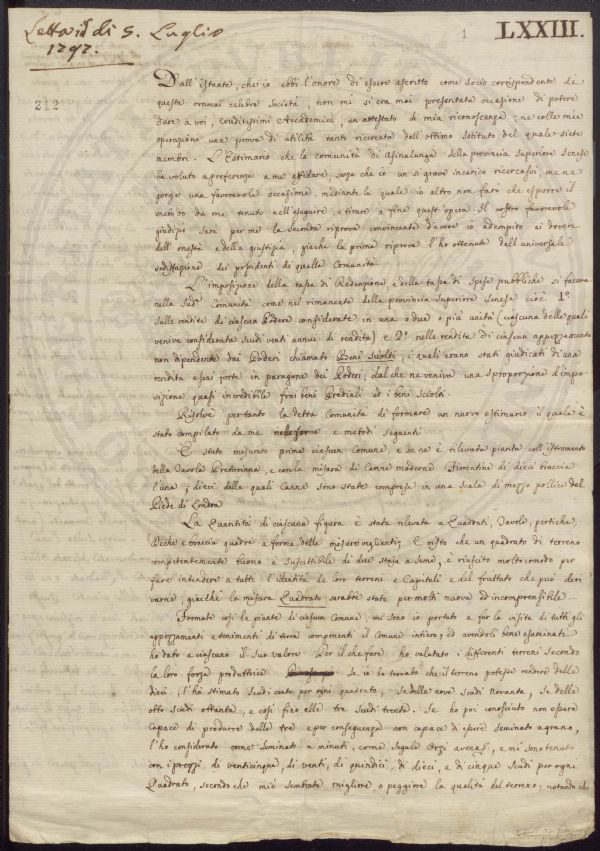 Letta il dì 5. Luglio
1797.
1
LXXIII.
212
Dall'istante, che io ebbi l'onore di essere ascritto come socio corrispondente di
questa ormai celebre Società, non mi si era mai presentata occasione di potere
dare a voi, eruditissimi Accademici, un attestato di mia riconoscenza; ne colle mie
operazioni una prova di utilità tanto ricercata dall'ottimo Istituto del quale siete
membri. L'Estimario che la comunità di Asinalunga della provincia Superiore Senese
ha voluto a preferenza a me affidare, senza che io un sì grave incarico ricercassi, me ne
porge una favorevole occasione, mediante la quale io altro non farò che esporre il
metodo da me tenuto nell'eseguire, e tirare a fine quest'opera. Il vostro favorevole
giudizio sarà per me la seconda riprova convincente d'avere io adempito ai doveri
dell'onestà e della giustizia, giacchè la prima riprova l'ho ottenuta dall'universale
sodisfazione dei possidenti di quella Comunità
L'imposizione della tassa di Redenzione, e della tassa di spese pubbliche si faceva
nella Sudª. Comunità come nel rimanente della provincia Superiore Senese cioè 1º
sulle rendite di ciascun Podere considerate in una o due o più unità (ciascuna delle quali
veniva considerata Scudi venti annui di rendita) e 2º. nelle rendite di ciascun appezzamento
non dipendente dai Poderi chiamato Beni Sciolti; i quali erano stati giudicati d'una
rendita assai forte in paragone dei Poderi; dal che ne veniva una sproporzione d'impo-
sizione quasi incredibile frai beni Prediali ed i beni Sciolti.
Risolvè pertanto la detta Comunità di formare un nuovo estimario il quale è
stato compilato da me nelle forme e metodi seguenti
È stato misurato prima ciascun Comune, e se ne è rilevata pianta coll'istromento
della Tavola Pretoriana, e con la misura di Canne moderne Fiorentine di dieci braccia
l'una; dieci delle quali Canne sono state comprese in una scala di mezzo pollice del
Piede di Londra
La Quantità di ciascuna figura è stata rilevata a Quadrati, Tavole, pertiche,
Deche e braccia quadre a forma delle misure veglianti; E visto che un quadrato di terreno
competentemente buono è suscettibile di due staja a seme, è riuscito molto comodo per
fare intendere a tutti l'identità de loro terreni e Capitali e del fruttato che può deri
varne; giacchè la misura Quadrato sarebbe stata per molti nuova ed incomprensibile
Formate così le piante di ciascun Comune, mi sono io portato a far la visita di tutti gli
appezzamenti e tenimenti di terra componenti il Comune intiero, ed avendoli bene esaminati
ho dato a ciascuno il suo valore. Per il che fare ho valutato i differenti terreni secondo
la loro forza produttrice se io ho trovato che il terreno potesse rendere delle
dieci, l'hò stimato Scudi cento per ogni quadrato, se delle nove Scudi novanta, se delle
otto Scudi ottanta, e così fino alle tre Scudi trenta. Se ho poi conosciuto non essere
capace di produrre delle tre e per conseguenza non capace di essere seminato a grano,
l'ho considerato come seminato a minuti, come Segale Orzi avena &, e mi sono tenuto
con i prezzi di venticinque, di venti, di quindici, di dieci, e di cinque Scudi per ogni
Quadrato, secondo che mi è sembrata migliore o peggiore la qualità del terreno; notando che